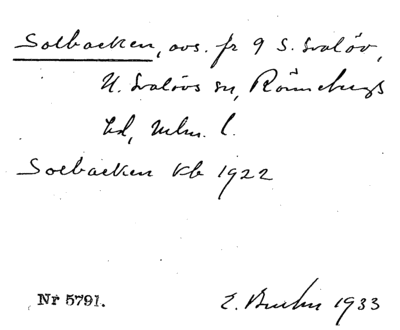 Solbacken, avs. fr 9 S. Svalöv,
N. Svalövs sn, Rönnebergs
hd, Mlm. l.
Solbacken kb 1922
Nr 5791.
E. 1933